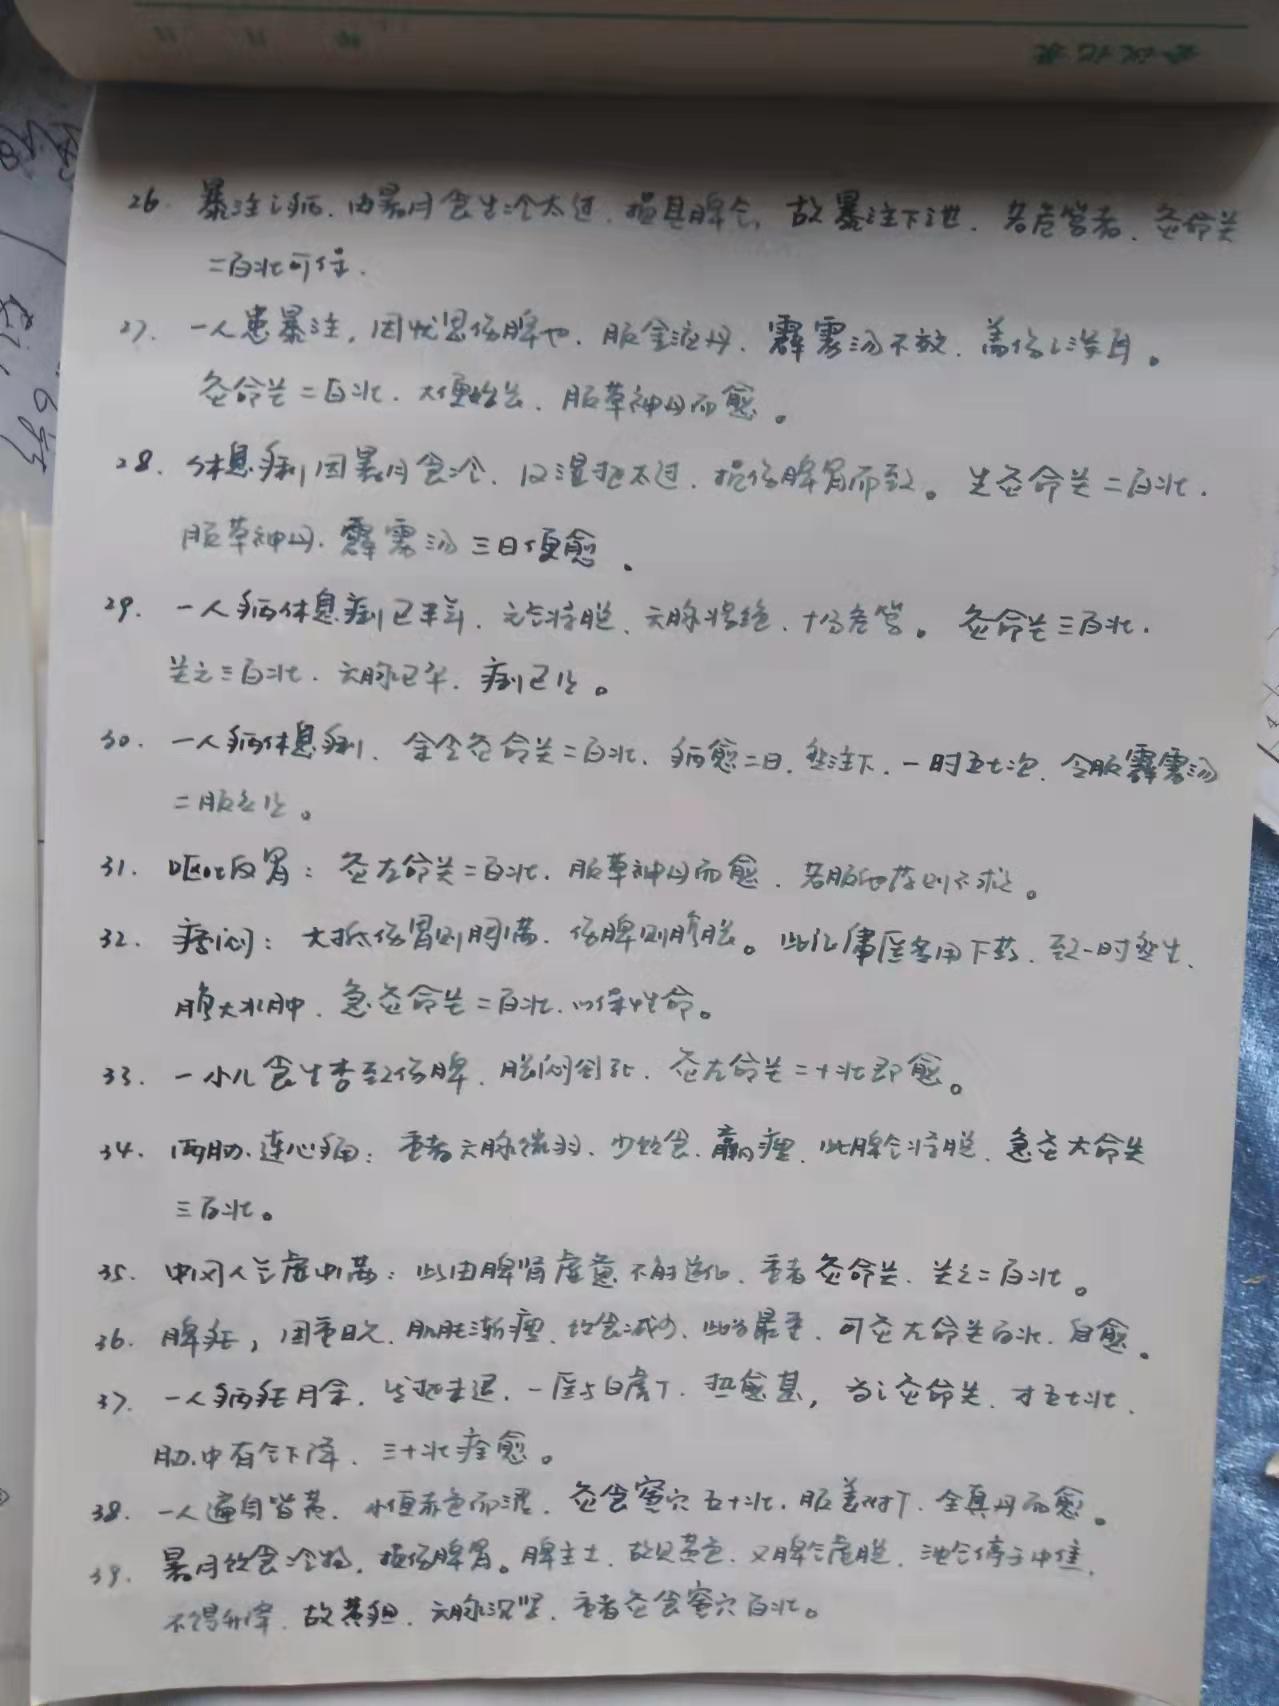 会议记录
26. 暴注之病,由暑月食生冷太过,损其脾气,故暴注下泄,若危笃者,灸命关
二百壮可保.
27. 一人患暴注,因忧思伤脾也,服金液丹,霹雳汤不效,盖伤之深耳。
灸命关二百壮.大便始长,服草神丹而愈。
28. 休息痢,因暑月食冷,及湿热太过,损伤脾胃而致。先灸命关二百壮.
服草神丹.霹雳汤三日便愈。
29. 一人病休息痢已半年,元气将脱,六脉将绝,十分危笃。灸命关三百壮.
关元三百壮.六脉已平,痢已止。
30. 一人病休息痢.余令灸命关二百壮,病愈二日,忽注下,一时五七次,令服霹雳汤
二服立止。
31. 呕吐反胃:灸左命关二百壮,服草神丹而愈,若服他药则不救。
32. 痞闷:大抵伤胃则胸满,伤脾则腹胀。此证庸医多用下药,致一时变生,
腹大水肿.急灸命关二百壮,以保性命。
33. 一小儿食生杏致伤脾,胀闷欲死.灸左命关二十壮即愈。
34. 两胁.连心痛:重者六脉微弱.少饮食.羸瘦.此脾气将脱.急灸左命关
三百壮。
35. 中风人气虚中满:此由脾肾虚惫不能运化.重者灸命关.关元二百壮。
36. 脾疟,困重日久.肌肤渐瘦.饮食减少.此为最重.可灸左命关百壮.自愈。
37. 一人病疟月余,发热未退,一医与白虎丁.热愈甚,为之灸命关.才五七壮,
胁.中有气下降,三十壮痊愈。
38. 一人遍身皆黄,小便赤色而涩.灸食窦穴五十壮,服姜附丁.全真丹而愈。
39. 暑月饮食冷物,损伤脾胃。脾主土,故见黄色,又脾气虚脱,浊气停于中焦.
不得升降.故黄疸.六脉沉紧.重者灸食窦穴百壮。